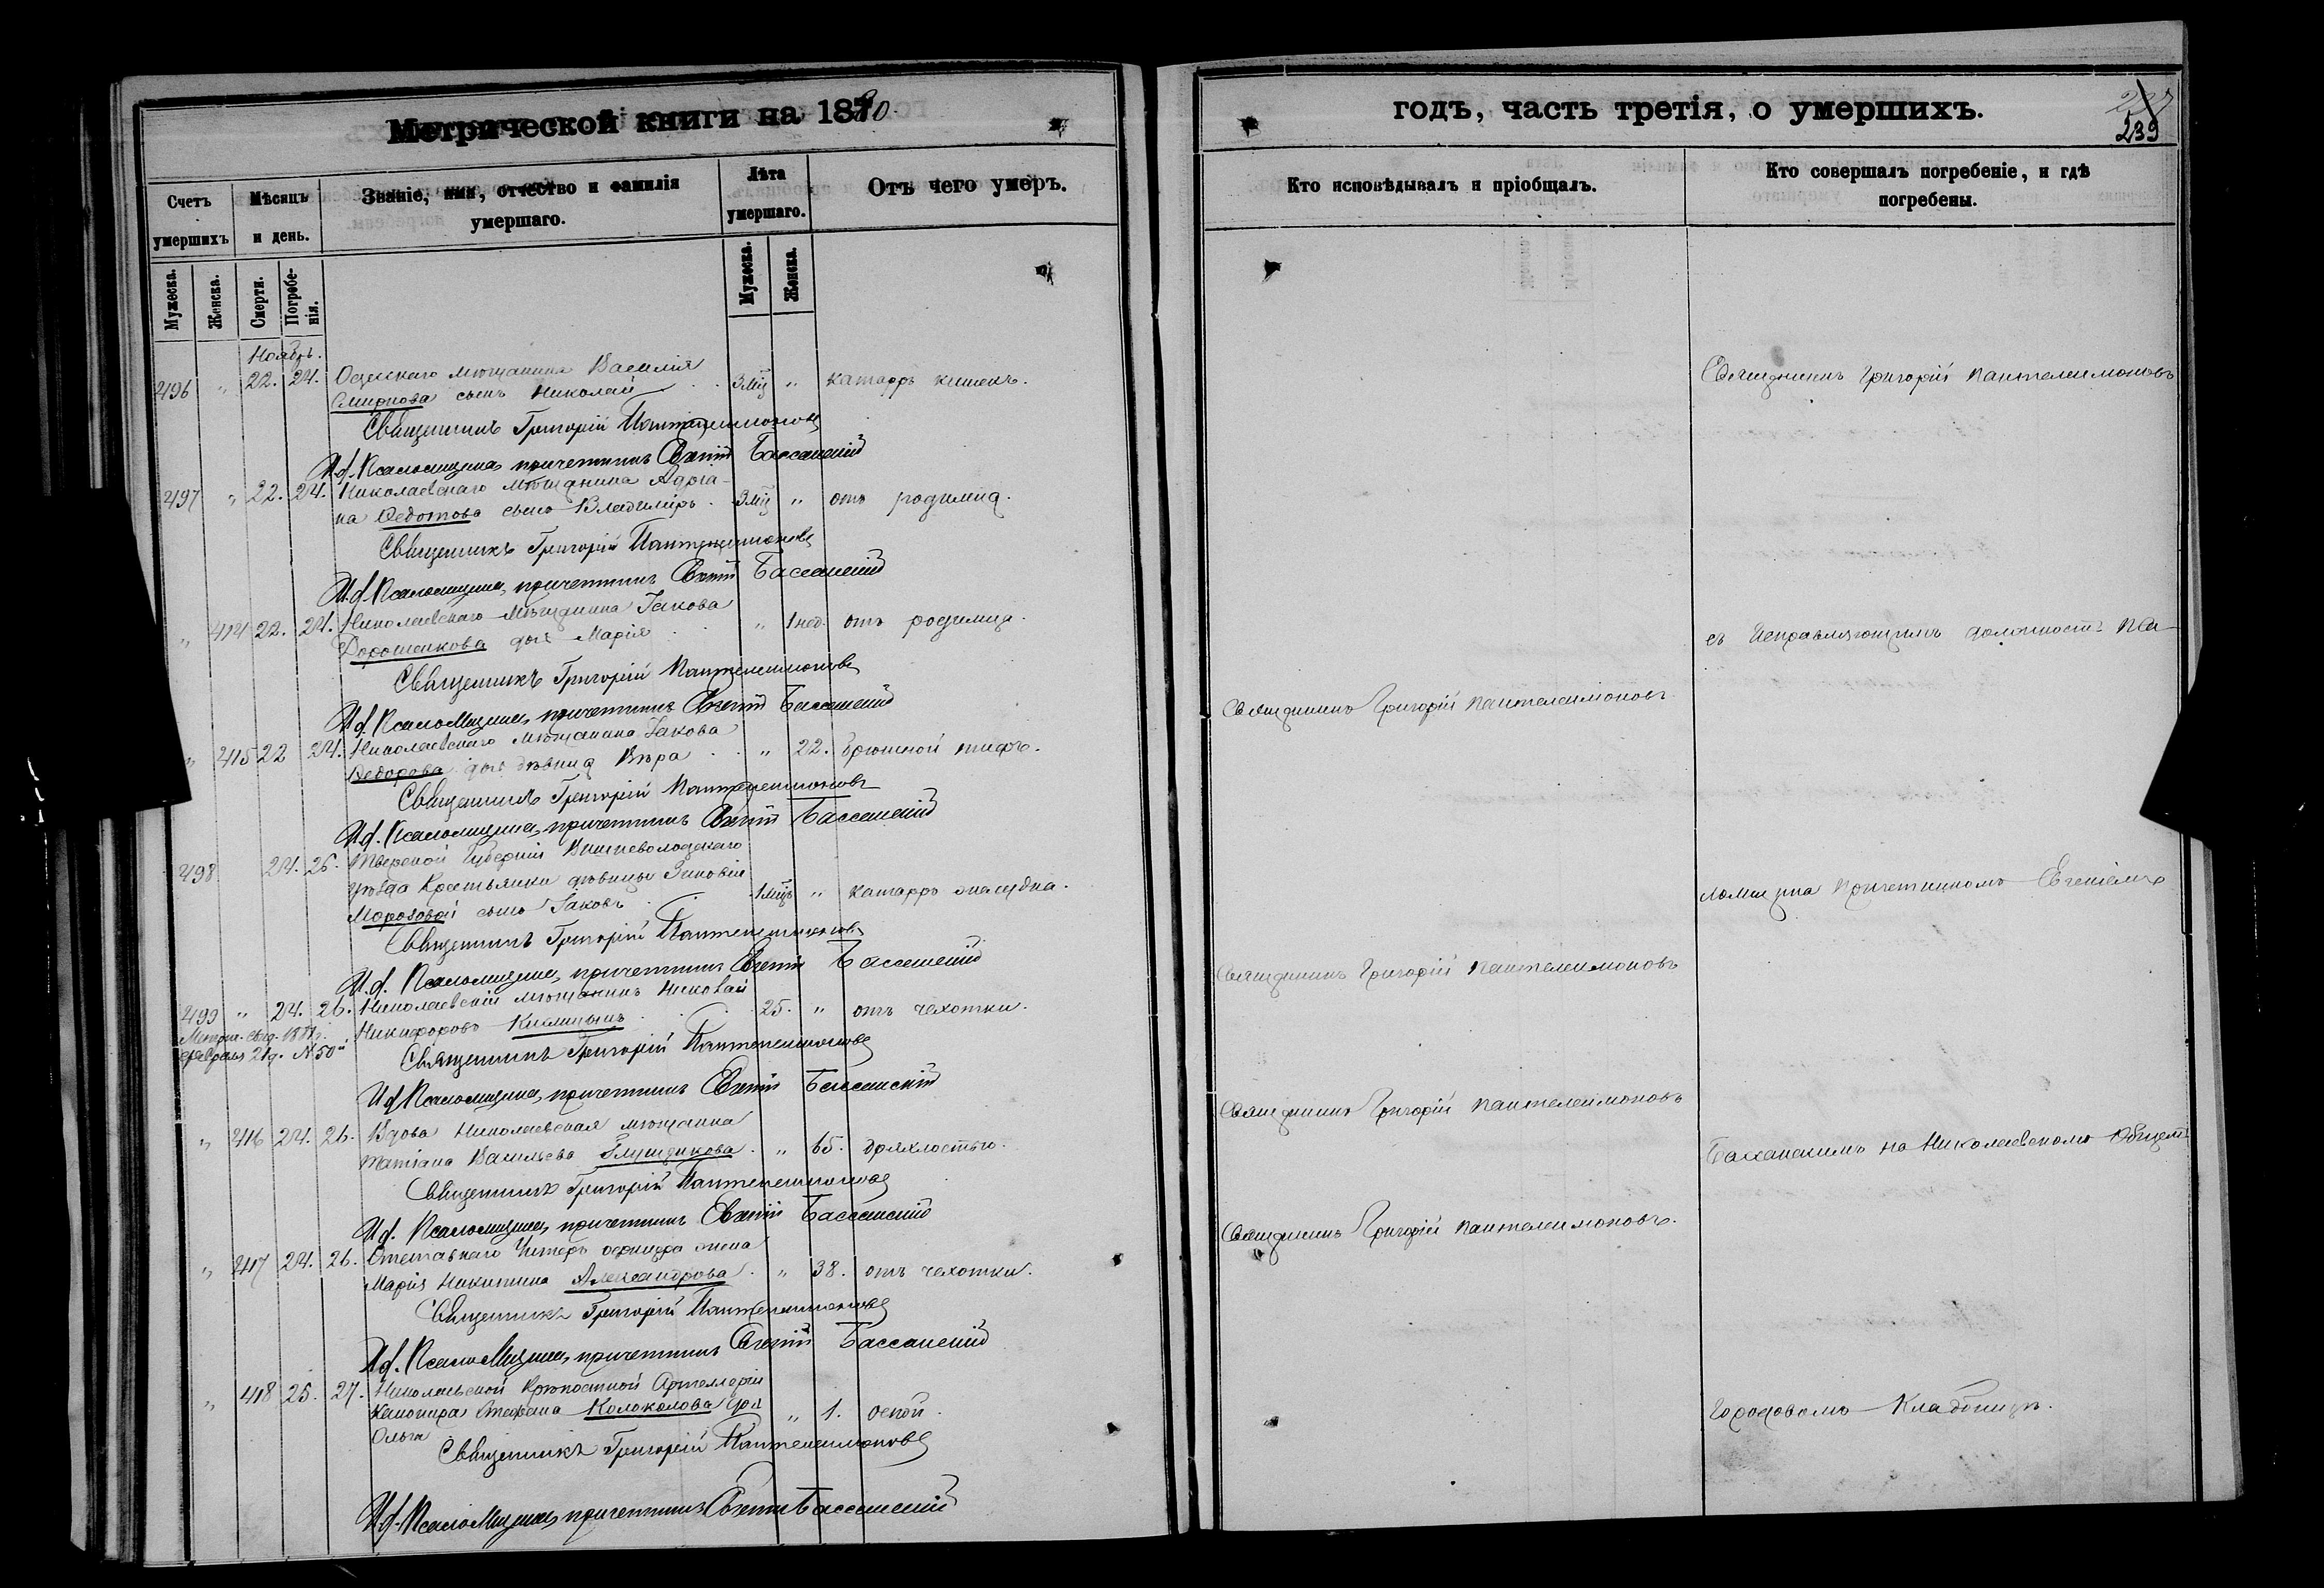 Метрической книги на 1880
годъ, часть третія, о умершихъ.
239
Счетъ умершихъ
Мѣсяцъ и день.
Званіе, имя, отчество и фамилія умершаго.
Лѣта умершаго.
Отъ чего умеръ.
Кто исповѣдывалъ и пріобщалъ.
Кто совершалъ погребеніе, и гдѣ погребены.
Мужеска. Женска. Смерти. Погребенія. Мужеска. Женска.
Ноябрь.
496 " 22. 24. Одесскаго мѣщанина Василія
Смирнова сынъ Николай 3 мц " катарръ кишекъ.
Священникъ Григорій Пантелеимоновъ
И.д. Псаломщика, причетникъ Евгеній Бассанскій
497 " 22. 24. Николаевскаго мѣщанина Адріа-
на Федотова сынъ Владиміръ 3 мц " отъ родимца.
Священникъ Григорій Пантелеимоновъ
И.д. Псаломщика, причетникъ Евгеній Бассанскій
" 414 22. 24. Николаевскаго мѣщанина Іакова
Дорошенкова дочь Марія " 1 нед. отъ родимца.
Священникъ Григорій Пантелеимоновъ
И.д. Псаломщика, причетникъ Евгеній Бассанскій
" 415 22 24. Николаевскаго мѣщанина Іакова
Федорова дочь дѣвица Вѣра " 22. брюшной тифъ.
Священникъ Григорій Пантелеимоновъ
И.д. Псаломщика, причетникъ Евгеній Бассанскій
498 24. 26. Тверской Губерніи Вышневолоцкаго
уѣзда Крестьянки дѣвицы Зиновіи
Морозовой сынъ Іаковъ 1 мцъ " катарръ желудка.
Священникъ Григорій Пантелеимоновъ
И.д. Псаломщика, причетникъ Евгеній Бассанскій
499 " 24. 26. Николаевскій мѣщанинъ Николай
Никифоровъ 25. " отъ чахотки.
Метрич. свид.
февраля 21 д. № 50
Священникъ Григорій Пантелеимоновъ
И.д. Псаломщика, причетникъ Евгеній Бассанскій
" 416 24. 26. Вдова Николаевская мѣщанка
Татіана Васильева " 65. дряхлостью.
Священникъ Григорій Пантелеимоновъ
И.д. Псаломщика, причетникъ Евгеній Бассанскій
" 417 24. 26. Отставнаго Унтеръ офицера жена
Марія Никитина Александрова " 38. отъ чахотки.
Священникъ Григорій Пантелеимоновъ
И.д. Псаломщика, причетникъ Евгеній Бассанскій
" 418 25. 27. Николаевской Крѣпостной Артиллеріи
Канонира Стефана Колоколова дочь
Ольга " 1. оспой.
Священникъ Григорій Пантелеимоновъ
И.д. Псаломщика, причетникъ Евгеній Бассанскій
Священникъ Григорій Пантелеимоновъ
Священникъ Григорій Пантелеимоновъ
Священникъ Григорій Пантелеимоновъ
Священникъ Григорій Пантелеимоновъ.
Священникъ Григорій Пантелеимоновъ
съ Исправляющимъ должность Пса-
ломщика Причетникомъ Евгеніемъ
Бассанскимъ на Николаевскомъ
Городовомъ Кладбищѣ.